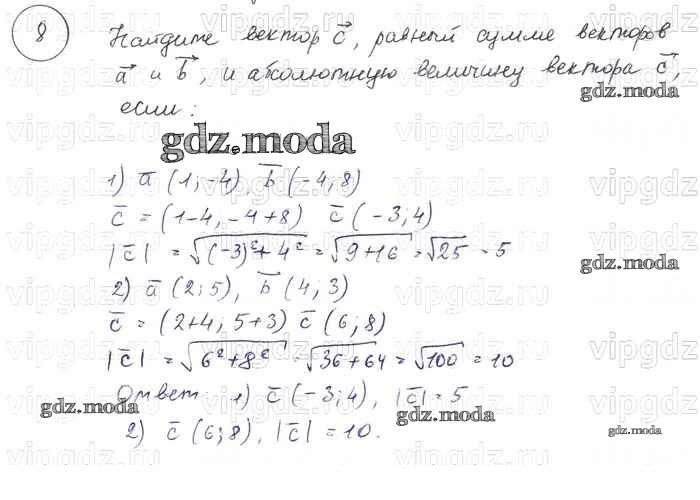 8 Найдите вектор c⃗, равный сумме векторов
a⃗ и b⃗, и абсолютную величину вектора c⃗,
если:
gdz.moda
1) a̅ (1; -4), b̅ (-4; 8)
c̅ = (1-4, -4+8) c̅ (-3; 4)
|c̅| = √((-3)²+4²) = √(9+16) = √25 = 5
gdz.moda
2) a̅ (2; 5), b̅ (4; 3)
c̅ = (2+4; 5+3) c̅ (6; 8)
|c̅| = √(6²+8²) = √(36+64) = √100 = 10
Ответ: 1) c̅ (-3; 4), |c̅| = 5
2) c̅ (6; 8), |c̅| = 10.
gdz.moda
gdz.moda
gdz.moda
gdz.moda
vipgdz.ru